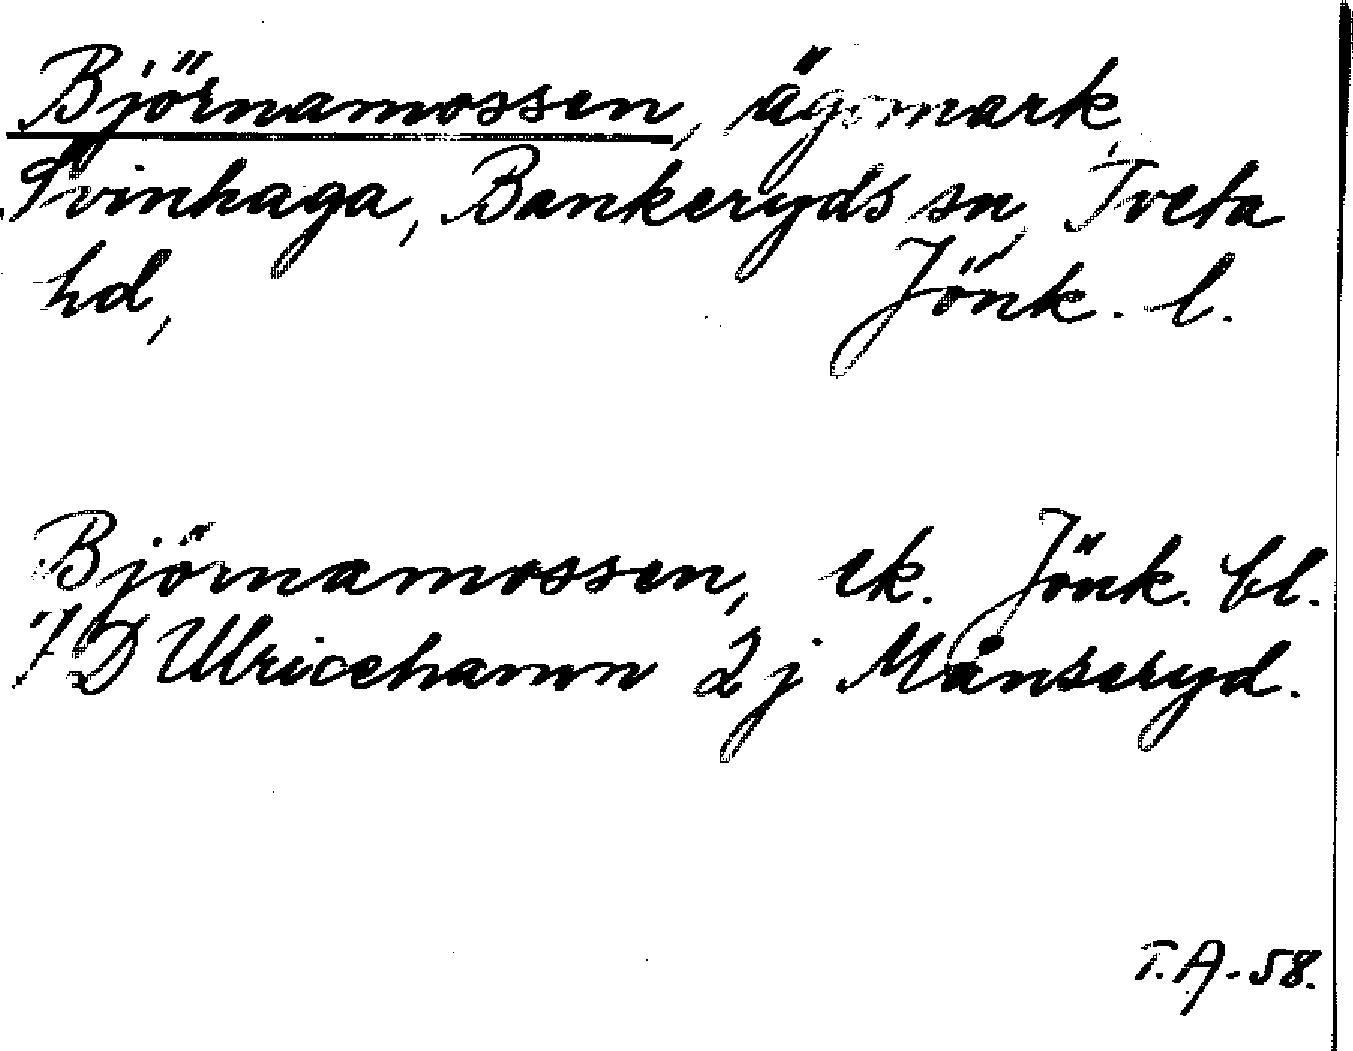 Björnamossen, ägomark,
Svinhaga, Bankeryds sn, Tveta
hd, Jönk. l.
Björnamossen, ek. Jönk. bl.
7D Ulricehamn 2j Månseryd.
T.A-58.